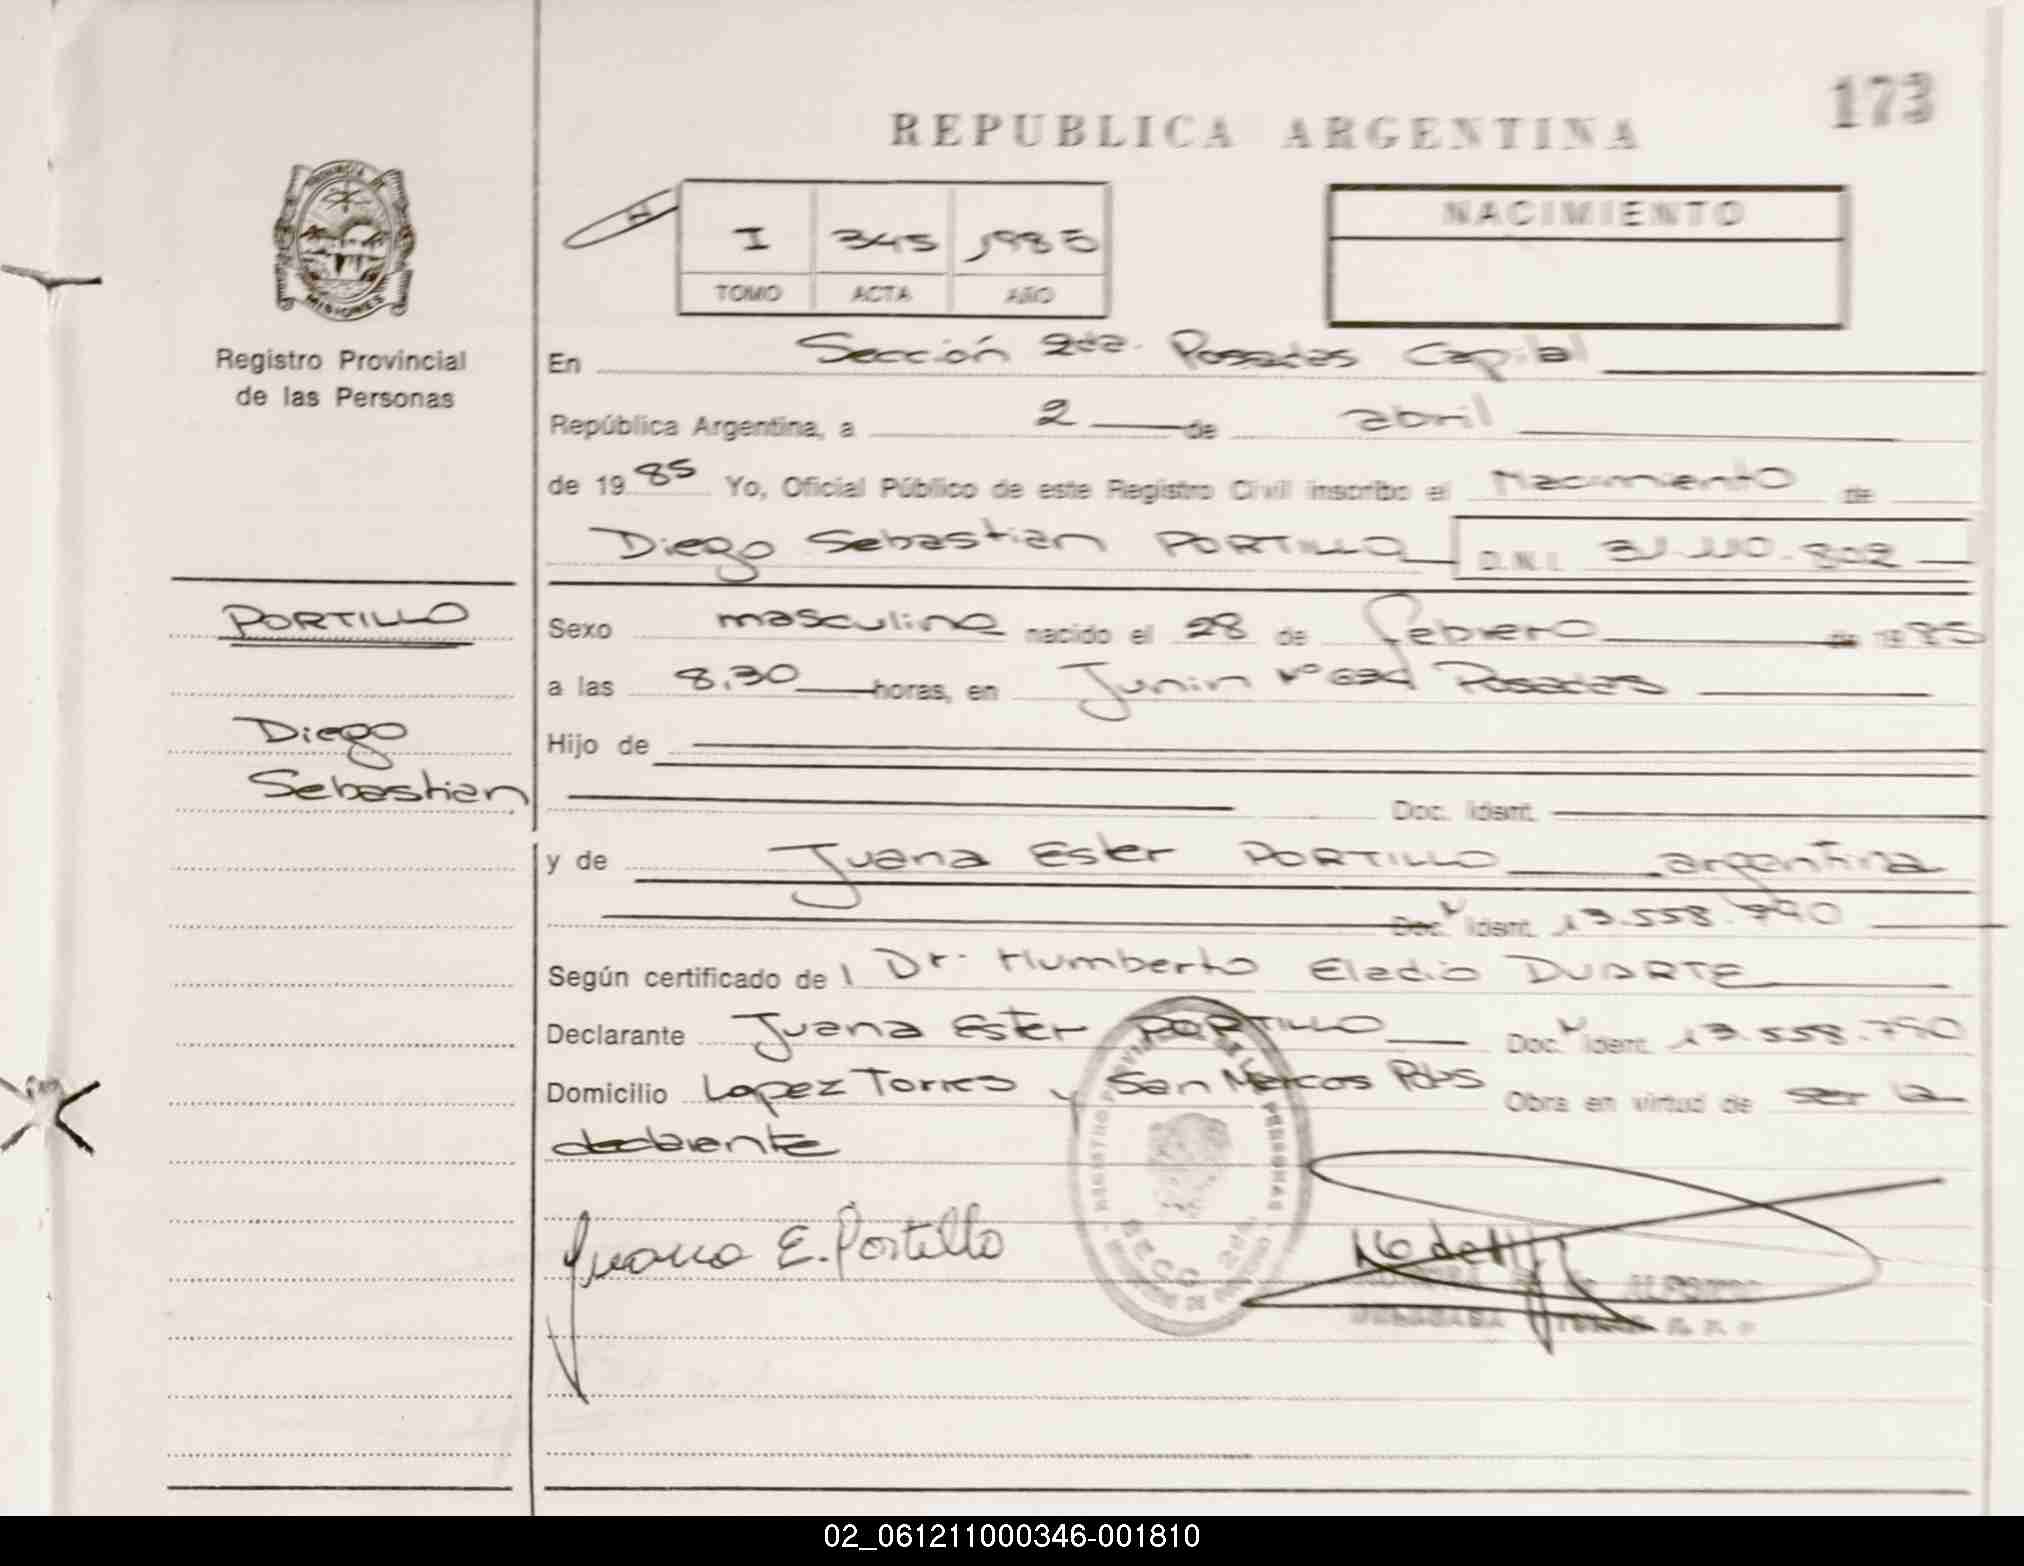 173
REPUBLICA ARGENTINA
PROVINCIA DE
MISIONES
Registro Provincial
de las Personas
I 345 1985
TOMO ACTA AÑO
NACIMIENTO
En Sección 2da. Posadas Capital
República Argentina, a 2 de abril
de 1985 Yo, Oficial Público de este Registro Civil inscribo el Nacimiento de
Diego Sebastian PORTILLO D.N.I. 31.110.802
PORTILLO
Diego
Sebastian
Sexo masculino nacido el 28 de febrero de 1985
a las 8,30 horas, en Junin Nº Posadas
Hijo de
Doc. Ident.
y de Juana Ester PORTILLO argentina
Doc. Ident. 13.558.790
Según certificado de l Dr. Humberto Eladio DUARTE
Declarante Juana Ester PORTILLO Doc. Ident. 13.558.790
Domicilio Lopez Torres y San Marcos Pdas Obra en virtud de ser la
declarante
Juana E. Portillo
SECC. 2da
ALFONZO
DELEGADA TITULAR R. P. P.
02_061211000346-001810